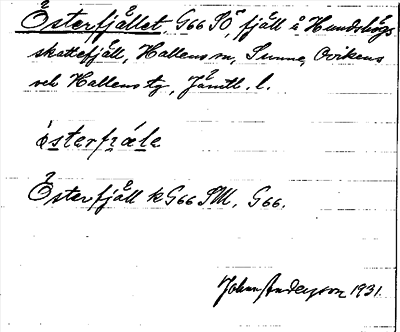 Österfjället, G66 SÖ, fjäll å Hundshögs
skattefjäll, Hallens sn, Sunne, Ovikens
och Hallens tg, Jämtl. l.
österfjæle
Österfjäll k G66 SM, G66.
Johan Anderson 1931.